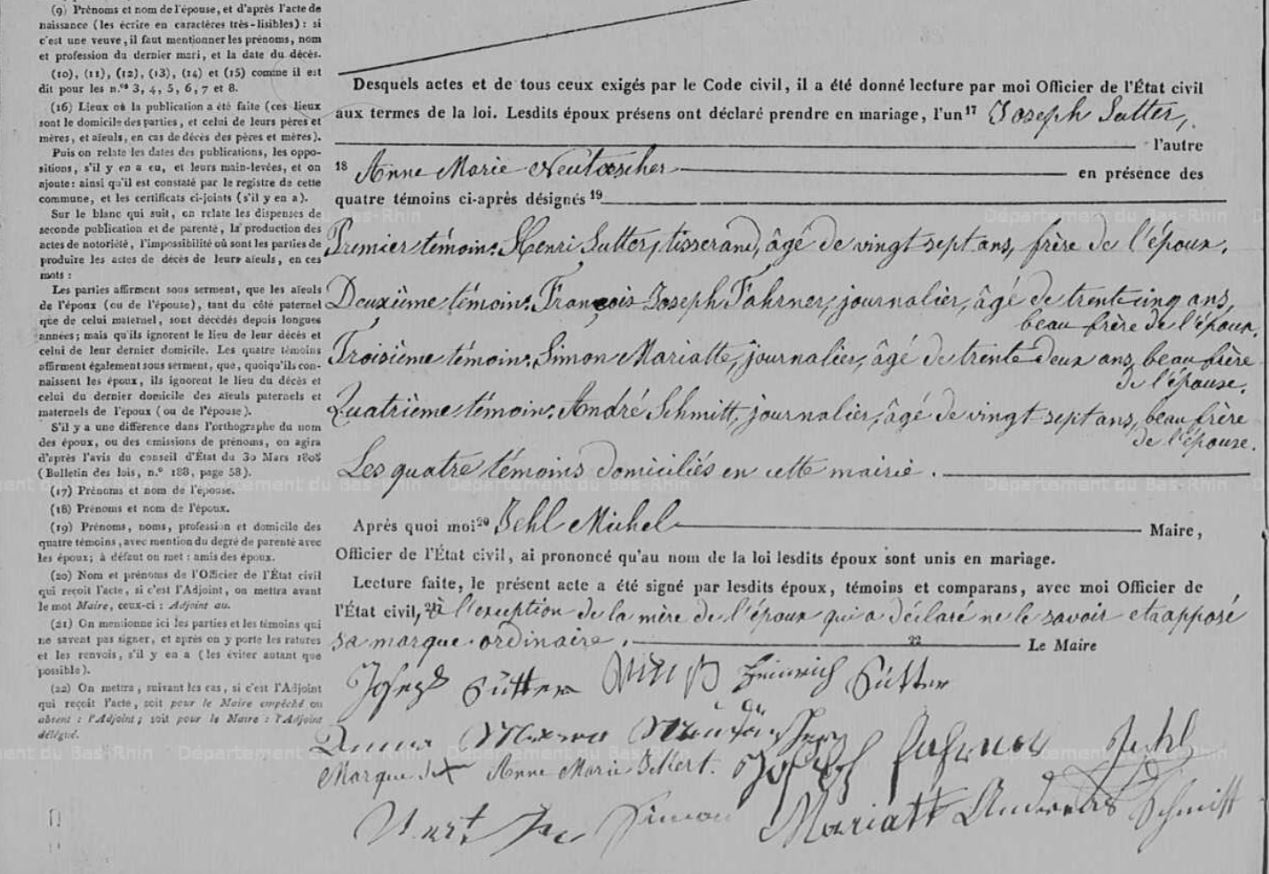 (9) Prénoms et nom de l'épouse, et d'après l'acte de
naissance (les écrire en caractères très-lisibles) : si
c'est une veuve, il faut mentionner les prénoms, nom
et profession du dernier mari, et la date du décès.
(10), (11), (12), (13), (14) et (15) comme il est
dit pour les n.os 3, 4, 5, 6, 7 et 8.
(16) Lieux où la publication a été faite (ces lieux
sont le domicile des parties, et celui de leurs pères et
mères, et aïeuls, en cas de décès des pères et mères).
Puis on relate les dates des publications, les oppo-
sitions, s'il y en a eu, et leurs main-levées, et on
ajoute: ainsi qu'il est constaté par le registre de cette
commune, et les certificats ci-joints (s'il y en a).
Sur le blanc qui suit, on relate les dispenses de
seconde publication et de parenté, la production des
actes de notoriété, l'impossibilité où sont les parties de
produire les actes de décès de leurs aïeuls, en ces
mots :
Les parties affirment sous serment, que les aïeuls
de l'époux (ou de l'épouse), tant du côté paternel
que de celui maternel, sont décédés depuis longues
années; mais qu'ils ignorent le lieu de leur décès et
celui de leur dernier domicile. Les quatre témoins
affirment également sous serment, que, quoiqu'ils con-
naissent les époux, ils ignorent le lieu du décès et
celui du dernier domicile des aïeuls paternels et
maternels de l'époux (ou de l'épouse).
S'il y a une différence dans l'orthographe du nom
des époux, ou des omissions de prénoms, on agira
d'après l'avis du conseil d'État du 30 Mars 1808
(Bulletin des lois, n.º 188, page 58).
(17) Prénoms et nom de l'épouse.
(18) Prénoms et nom de l'époux.
(19) Prénoms, noms, profession et domicile des
quatre témoins, avec mention du degré de parenté avec
les époux; à défaut on met : amis des époux.
(20) Nom et prénoms de l'Officier de l'État civil
qui reçoit l'acte, si c'est l'Adjoint, on mettra avant
le mot Maire, ceux-ci : Adjoint au.
(21) On mentionne ici les parties et les témoins qui
ne savent pas signer, et après on y porte les ratures
et les renvois, s'il y en a (les éviter autant que
possible).
(22) On mettra, suivant les cas, si c'est l'Adjoint
qui reçoit l'acte, soit pour le Maire empêché ou
absent : l'Adjoint; soit pour le Maire : l'Adjoint
délégué.
Desquels actes et de tous ceux exigés par le Code civil, il a été donné lecture par moi Officier de l'État civil
aux termes de la loi. Lesdits époux présens ont déclaré prendre en mariage, l'un 17 Joseph Sutter,
l'autre
18 Anne Marie Neutœscher en présence des
quatre témoins ci-après désignés 19
Premier témoin: Henri Sutter, tisserand, âgé de vingt sept ans, frère de l'époux.
Deuxième témoin: François Joseph Fahrner, journalier, âgé de trente cinq ans,
beau-frère de l'époux.
Troisième témoin: Simon Mariatte, journalier, âgé de trente deux ans, beau frère
de l'épouse.
Quatrième témoin: André Schmitt, journalier, âgé de vingt sept ans, beau frère
de l'épouse.
Les quatre témoins domiciliés en cette mairie.
Après quoi moi 20 Jehl Michel Maire,
Officier de l'État civil, ai prononcé qu'au nom de la loi lesdits époux sont unis en mariage.
Lecture faite, le présent acte a été signé par lesdits époux, témoins et comparans, avec moi Officier de
l'État civil, 21 à l'exception de la mère de l'époux qui a déclaré ne le savoir et a apposé
sa marque ordinaire. 22 Le Maire
Joseph Sütter Heinrich Sütter
Anna Maria
Marque de X Anne Marie Joseph Fahrner Jehl
Simon Mariatt Andreas Schmitt
Département du Bas-Rhin